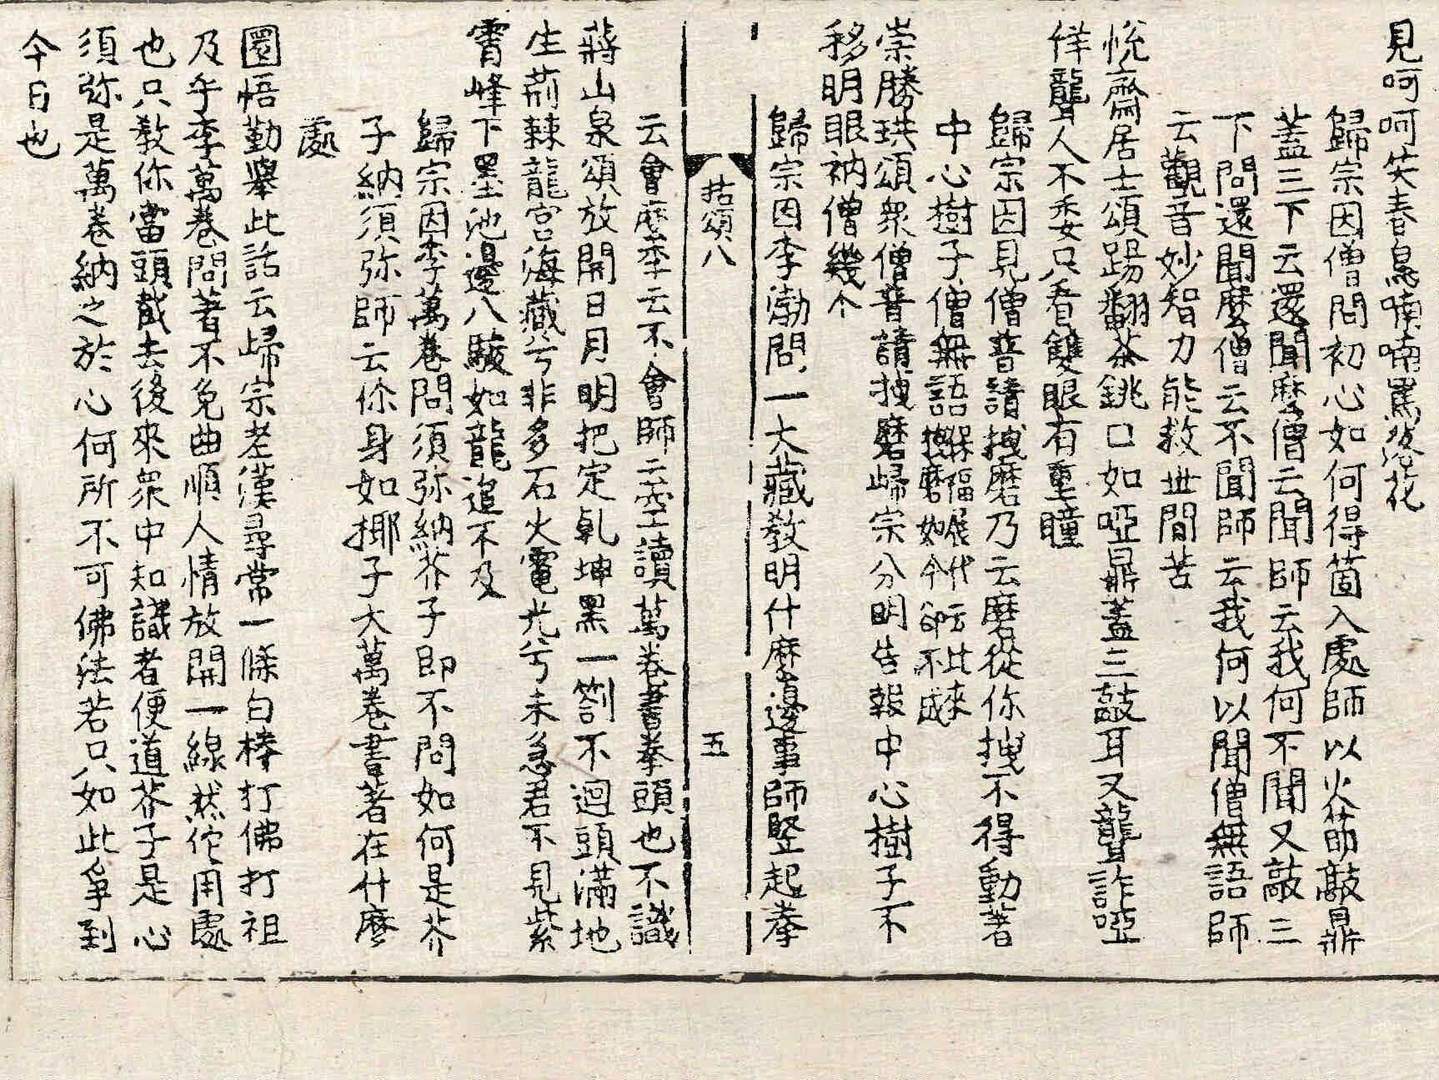 見呵呵笑春鳥喃喃罵落花
歸宗因僧問初心如何得箇入處師以火筯敲鼎
蓋三下云還聞麼僧云聞師云我何不聞又敲三
下問還聞麼僧云不聞師云我何以聞僧無語師
云觀音妙智力能救世間苦
悅齋居士頌踢翻茶銚口如啞鼎蓋三敲耳又聾詐啞
佯聾人不委只看雙眼有重瞳
歸宗因見僧普請拽磨乃云磨從你拽不得動著
中心樹子僧無語保福展代云比來拽磨如今卻不成
崇勝珙頌眾僧普請拽磨歸宗分明告報中心樹子不
移明眼衲僧幾个
歸宗因李渤問一大藏教明什麼邊事師竪起拳
拈頌八 五
云會麼李云不會師云空讀萬卷書拳頭也不識
蔣山泉頌放開日月明把定乾坤黑一劄不迴頭滿地
生荊棘龍宮海藏兮非多石火電光兮未急君不見紫
霄峰下墨池邊八駿如龍追不及
歸宗因李萬卷問須弥納芥子即不問如何是芥
子納須弥師云你身如揶子大萬卷書著在什麼
處
圜悟勤舉此話云歸宗老漢尋常一條白棒打佛打祖
及乎李萬卷問著不免曲順人情放開一線然佗用處
也只教你當頭截去後來眾中知識者便道芥子是心
須弥是萬卷納之於心何所不可佛法若只如此爭到
今日也